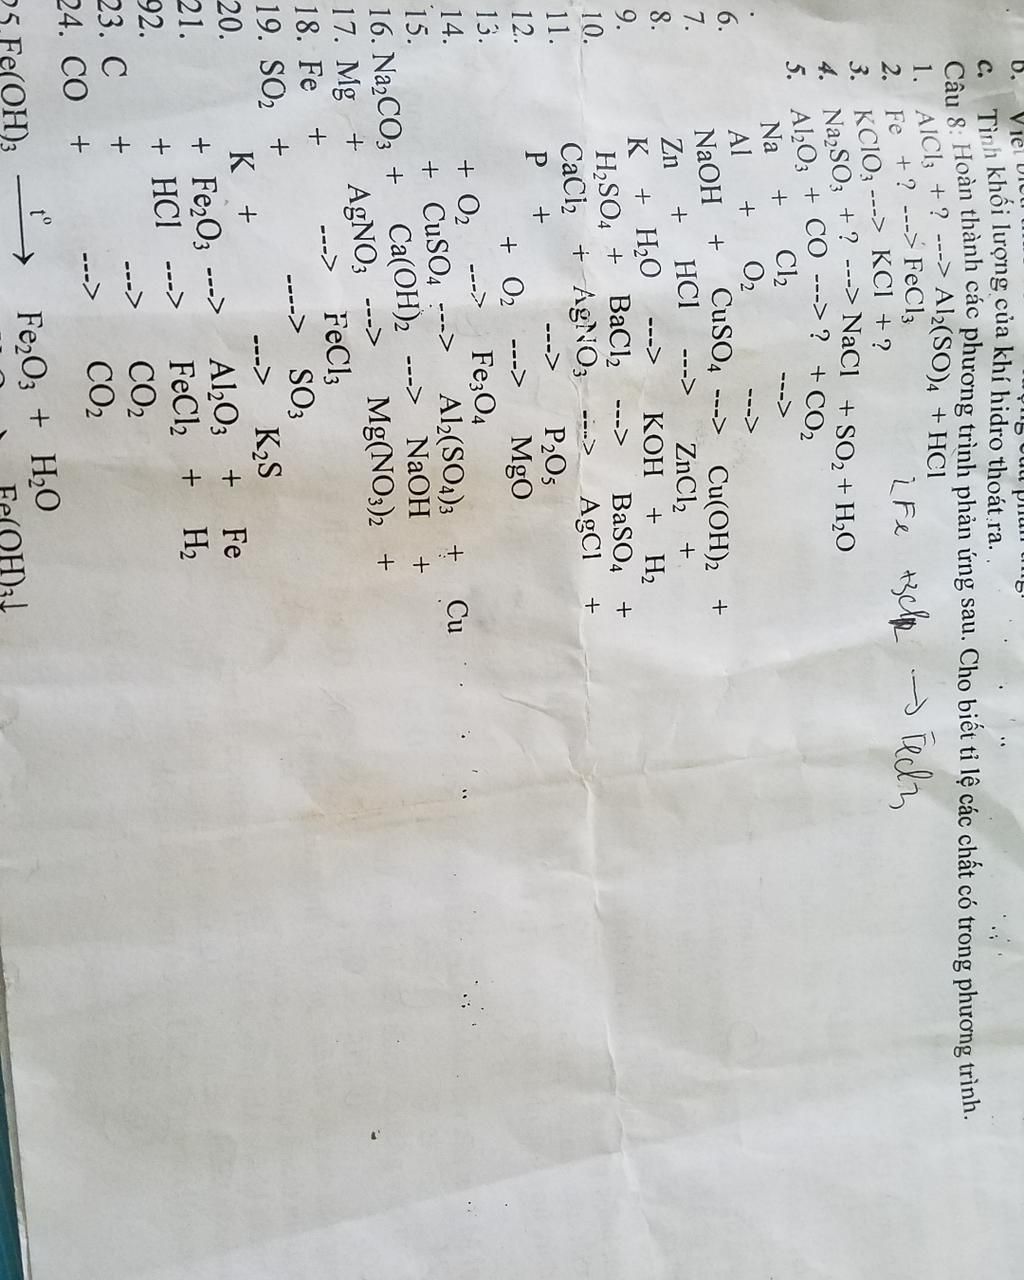 c. Tính khối lượng của khí hidro thoát ra.
Câu 8: Hoàn thành các phương trình phản ứng sau. Cho biết tỉ lệ các chất có trong phương trình.
1. AlCl₃ + ? ---> Al₂(SO)₄ + HCl
2. Fe + ? ---> FeCl₃
2Fe + 3Cl₂ → FeCl₃
3. KClO₃ ---> KCl + ?
4. Na₂SO₃ + ? ---> NaCl + SO₂ + H₂O
5. Al₂O₃ + CO ---> ? + CO₂
. Na + Cl₂ --->
6. Al + O₂ --->
7. NaOH + CuSO₄ ---> Cu(OH)₂ +
8. Zn + HCl ---> ZnCl₂ +
9. K + H₂O ---> KOH + H₂
10. H₂SO₄ + BaCl₂ ---> BaSO₄ +
11. CaCl₂ + AgNO₃ ---> AgCl +
12. P + ---> P₂O₅
13. + O₂ ---> MgO
14. + O₂ ---> Fe₃O₄
15. + CuSO₄ ---> Al₂(SO₄)₃ + Cu
16. Na₂CO₃ + Ca(OH)₂ ---> NaOH +
17. Mg + AgNO₃ ---> Mg(NO₃)₂ +
18. Fe + ---> FeCl₃
19. SO₂ + ----> SO₃
20. K + ---> K₂S
21. + Fe₂O₃ ---> Al₂O₃ + Fe
92. + HCl ---> FeCl₂ + H₂
23. C + ---> CO₂
24. CO + ---> CO₂
25. Fe(OH)₃ t⁰→ Fe₂O₃ + H₂O
Fe(OH)₃↓